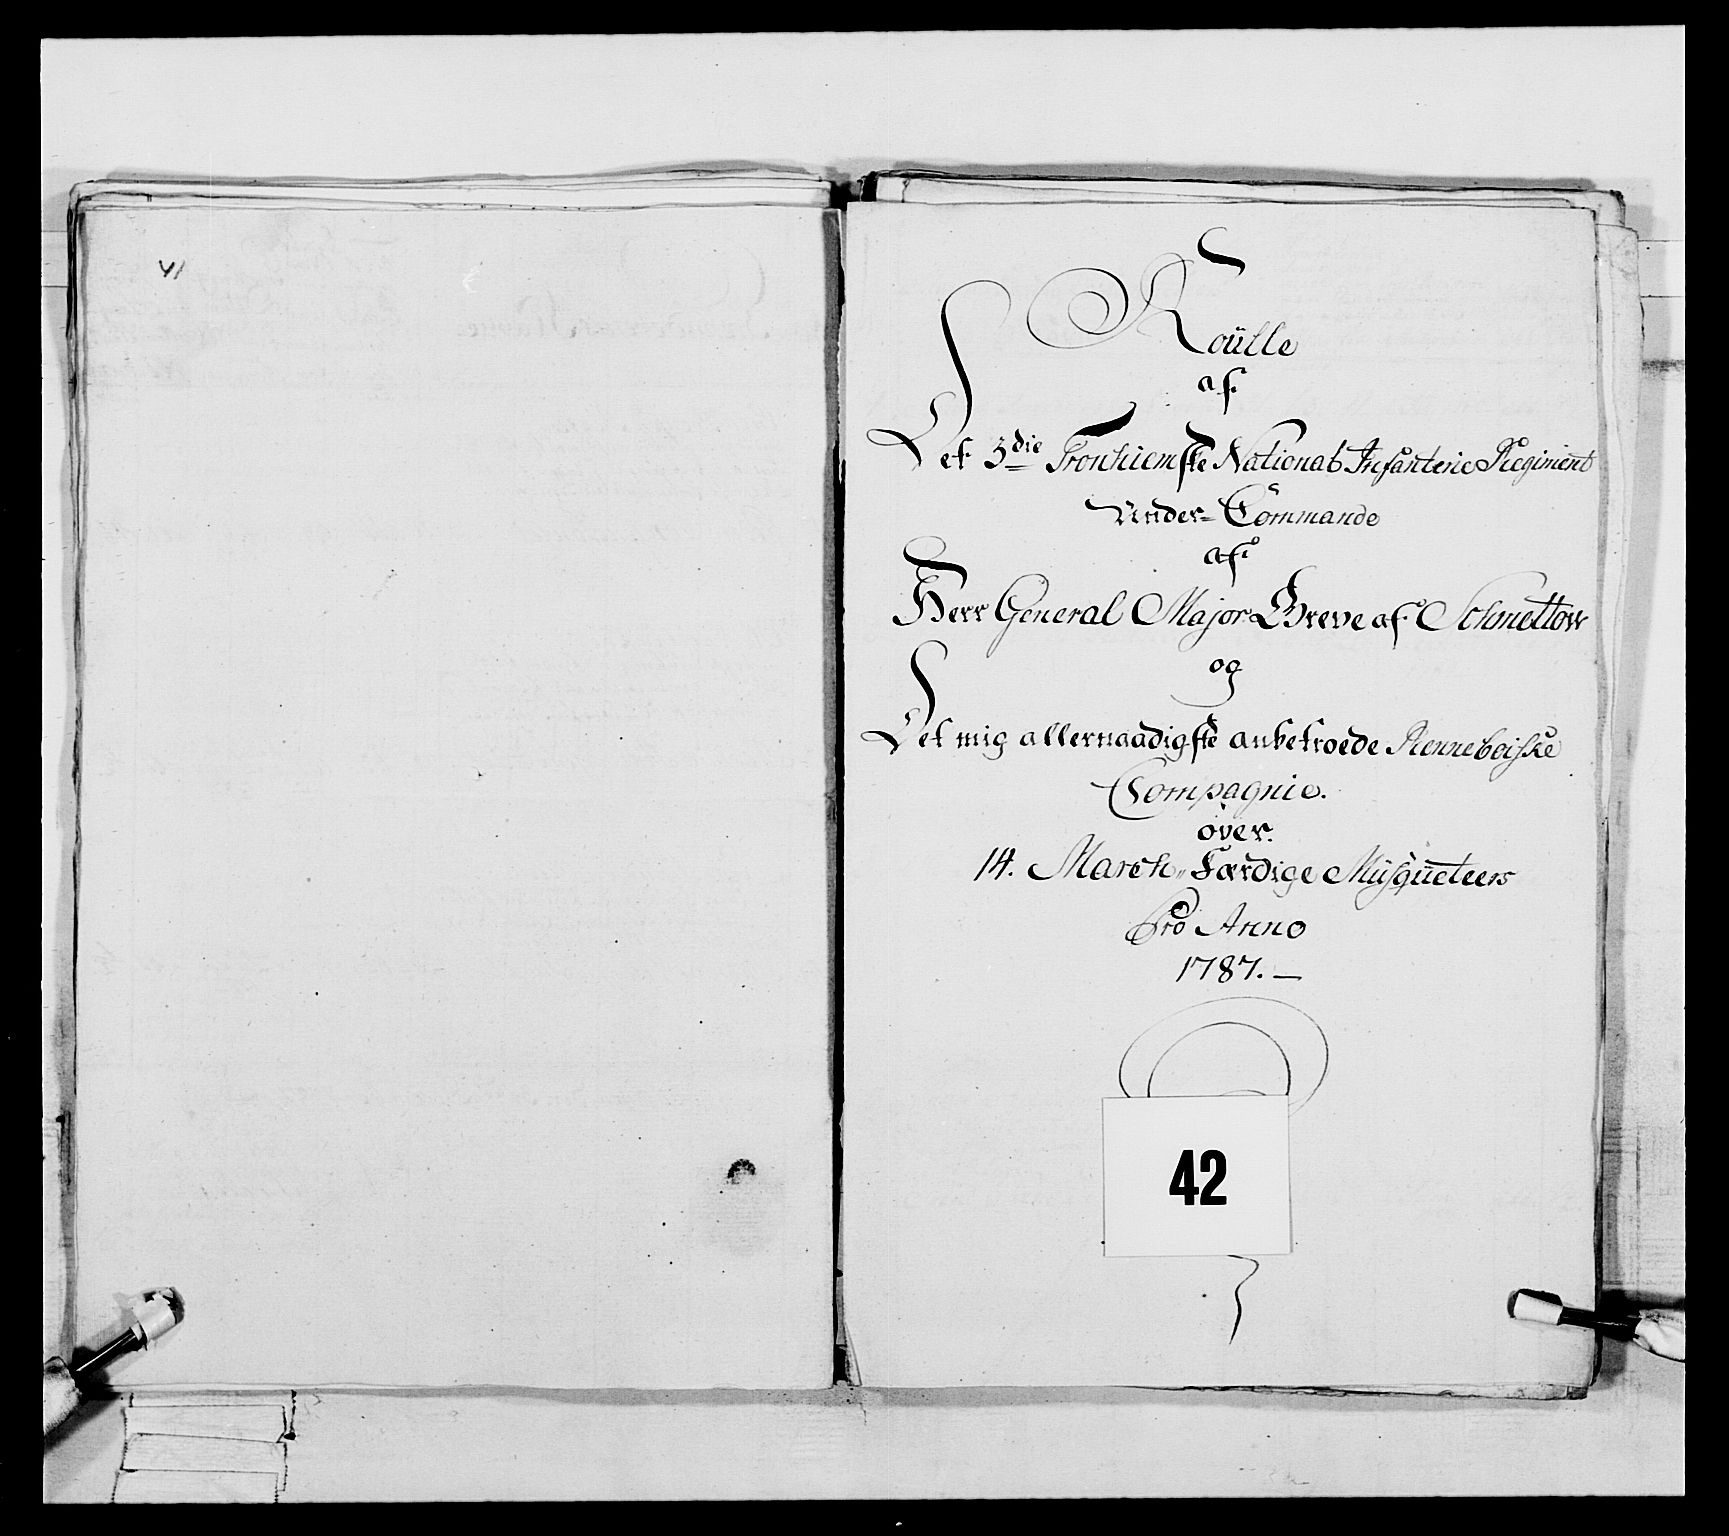 41
Roülle
af
Det 3die Tronhiemske National Infanterie Regiment
Under= Commando
af
Herr General Major Greve af Schmettow
og
Det mig allernaadigste anbetroede Renneboiske
Compagnie.
over.
14. March„ Færdige Müsqueteers
Pro Anno
1787. —
42